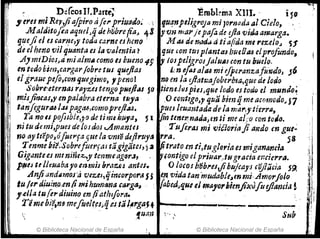 Defeos II. Parte;
y eres mi Rey, si aspiro à ser priuado.
Malditos sea aquel, q̃ de hõbre fia, 48
que si el es carne, y toda carne es heno
de el heno vil quanta es la valentia?
Ay mi Dios, à mi alma como es bueno 49
en todo bien, cargar sobre tus
el graue peso, con que gimo, y peno!
Sobre eternas rayzes tengo puestas 50
mis fincas, y en palabra eterna tuya
tan seguras las pagas, como prestas.
Ya no es posible, q̃ o de ti me huya, 51
ni tu de mi, pues de los dos Amantes
no ay tẽpo, ò fuerça que la vniõ destruya
Tenme biẽ. Sobre fuerças tã gigãtes, 52
Gigante es mi niñez, y tenme agora,
pues te lleuaba yo en mis brazos antes.
tu ser diuino en mi humana carga,
y ella tu ser diuino en si athesora.
Tẽ me biẽ, no me sueltes, q̃ es tã larga 54
quan
Emblema XIII. 150
quan peligrosa mi jornada al Cielo,
y vn mar je pasa de esta vida amarga.
Mas de nada à ti asida me rezelo, 55
que con tus plantas buelas el profundo,
y los peligros salua con tu buelo.
En esas alas mi esperança fundo, 56
no en la estatua soberbia, que de lodo
tiene los pies, que lodo es todo el mundo:
O contigo, y quã bien q̃ me acomodo, 57
pues leuantada de la mar, y tierra,
sin tener nada, en ti me alço con todo.
Tu seras mi victoria si ando en guerra.
58
si trato en ti, tu gloria es mi ganancia
y contigo el priuar, tu gracia encierra.
O locos hõbres, si buscays cõstãcia 59
en vida tan mudable, en mi Amor solo
sabed, que el mayor bien fixò su estancia
Sub
© Biblioteca Nacional de España
© Biblioteca Nacional de España